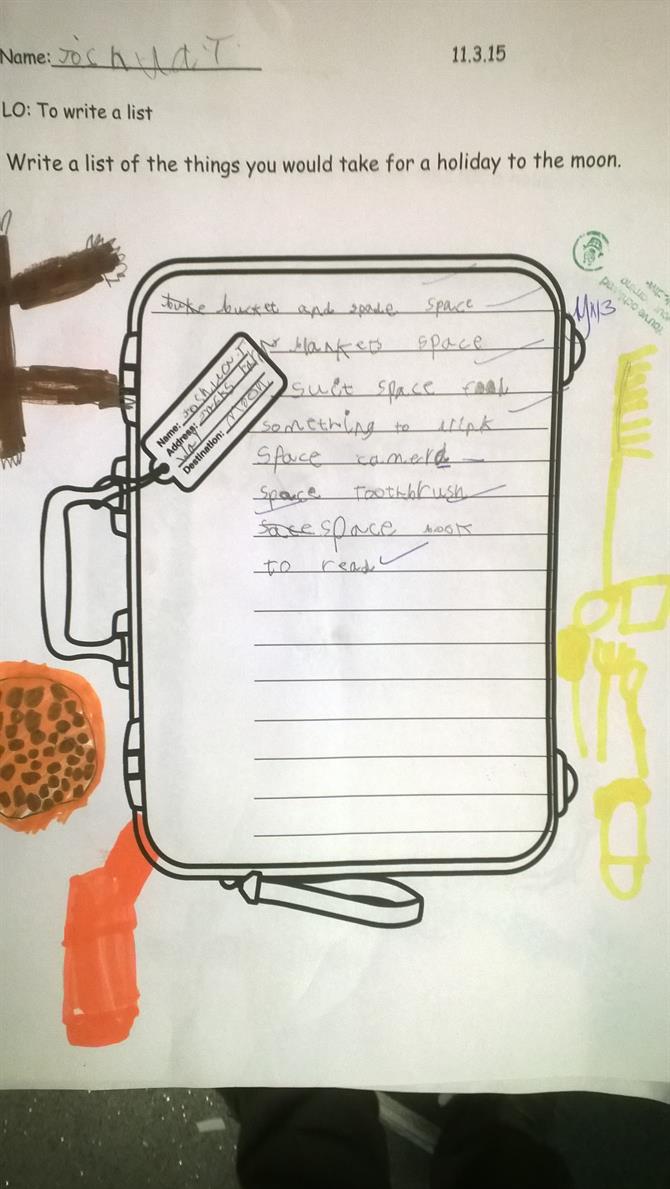 Name: Joshua T
11.3.15
LO: To write a list
Write a list of the things you would take for a holiday to the moon.
bucket and spade space
blankets space
suit space food
something to drink
Space camera
space toothbrush
space book
to read
Name: Joshua T
Address:
Destination: Moon